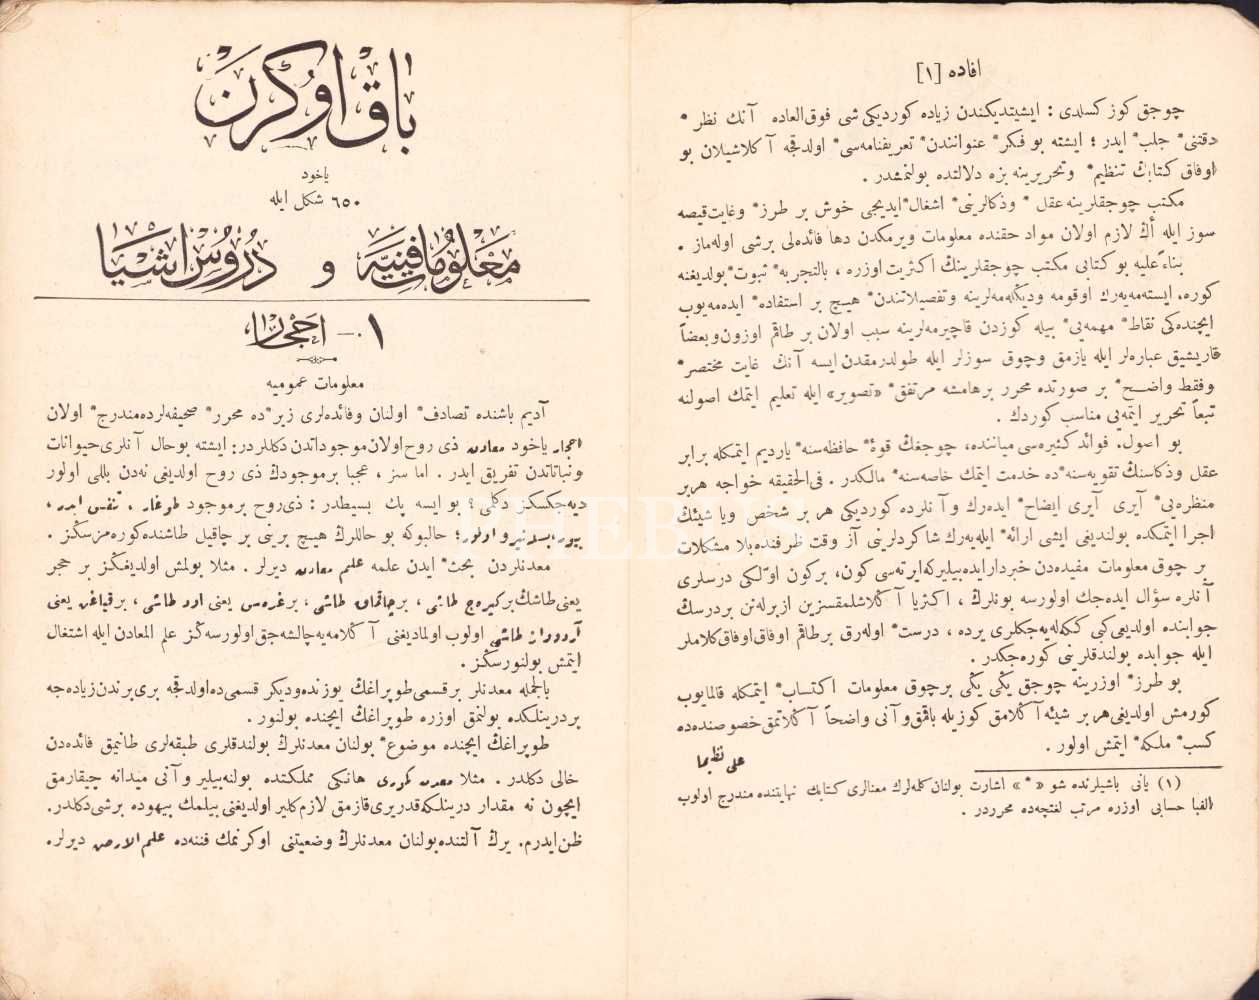 افاده [١]
چوجق كوز كسلدى : ايشيتديكندن زياده كورديكى شى فوق‌العاده آنك نظر *
دقتنى * جلب * ايدر ؛ ايشته بو فكر * عنوانندن * تعريفنامه‌سى * اولدقجه آكلاشيلان بو
اوفاق كتابك تنظيم * وتحريرينه بزه دلالتده بولنمشدر .
مكتب چوجقلرينه عقل * وذكالرينى * اشغال * ايديجى خوش بر طرز * وغايت قيصه
سوز ايله اڭ لازم اولان مواد حقنده معلومات ويرمكدن دها فائده‌لى برشى اوله‌ماز .
بناءً عليه بو كتابى مكتب چوجقلرينك اكثريت اوزره ، بالتجربه * ثبوت * بولديغنه
كوره ، ايسته‌مه‌يه‌رك اوقومه وديكله‌مه‌لرينه وتفصيلاتندن * هيچ بر استفاده * ايده‌مه‌يوب
ايچنده‌كى نقاط * مهمه‌يى * بيله كوزدن قاچيرمه‌لرينه سبب اولان بر طاقم اوزون و بعضاً
قاريشيق عباره‌لر ايله يازمق وچوق سوزلر ايله طولدرمقدن ايسه آنك غايت مختصر *
وفقط واضح * بر صورتده محرر برهامشه مرتفق * «تصوير» ايله تعليم ايتمك اصولنه
تبعاً تحرير ايتمه‌يى مناسب كوردك .
بو اصول ، فوائد كثيره‌سى مياننده ، چوجغك قوهٔ * حافظه‌سنه * يارديم ايتمكله برابر
عقل وذكاسنك تقويه‌سنه * ده خدمت ايتمك خاصه‌سنه * مالكدر . فى‌الحقيقه خواجه هربر
منظره‌يى * آيرى آيرى ايضاح * ايده‌رك و آنلرده كورديكى هر بر شخص ويا شيئك
اجرا ايتمكده بولنديغى ايشى ارائه * ايله‌يه‌رك شاكردلرينى آز وقت ظرفنده بلا مشكلات
بر چوق معلومات مفيده‌دن خبردار ايده‌بيليركه ايرته‌سى كون ، بركون اوّلكى درسلرى
آنلره سؤال ايده‌جك اولورسه بونلرك ، اكثريا آكلاشلمقسزين ازبرله‌نن بردرسك
جوابنده اولديغى كبى ككه‌له‌يه‌جكلرى يرده ، درست * اوله‌رق برطاقم اوفاق اوفاق كلاملر
ايله جوابده بولندقلرينى كوره‌جكدر .
بو طرز * اوزرينه چوجق يكى يكى برچوق معلومات اكتساب * ايتمكله قالمايوب
كورمش اولديغى هر بر شيئه آكلامق كوزيله باقمق و آنى واضحاً آكلاتمق خصوصنده‌ده
كسب * ملكه * ايتمش اولور .
على نظيما
(١) يانى باشيلرنده شو « * » اشارت بولنان كله‌لرك معنالرى كتابك نهايتنده مندرج اولوب
الفبا حسابى اوزره مرتب لغتچه‌ده محرردر .
باق اوكرن
ياخود
٦٥٠ شكل ايله
معلومات فنيه و دروس اشيا
١ – احجار
معلومات عموميه
آديم باشنده تصادف * اولنان وفائده‌لرى زير * ده محرر * صحيفه‌لرده مندرج * اولان
احجار ياخود معادن ذى روح اولان موجوداتدن دكلدر : ايشته بوحال آنلرى حيوانات
ونباتاتدن تفريق ايدر . اما سز ، عجبا برموجودك ذى روح اولديغى نه‌دن بللى اولور
ديه‌جكسكز دكلى ؟ بو ايسه پك بسيطدر : ذى‌روح برموجود طوغار ، تنفس ايدر ،
بيور ، بسلنير و اولور ؛ حالبوكه بو حاللرك هيچ برينى بر چاقيل طاشنده كوره‌مزسكز .
معدنلردن بحث * ايدن علمه علم معادن ديرلر . مثلا بولمش اولديغكز بر حجر
يعنى طاشك بركيرج طاشى ، برچاقماق طاشى ، برغره‌س يعنى اور طاشى ، برقياغن يعنى
آردوواز طاشى اولوب اولماديغنى آكلامه‌يه چالشه‌جق اولورسه‌كز علم المعادن ايله اشتغال
ايتمش بولنورسكز .
بالجمله معدنلر برقسمى طوپراغك يوزنده وديكر قسمى ده اولدقجه برى برندن زياده‌جه
بر درينلكده بولنمق اوزره طوپراغك ايچنده بولنور .
طوپراغك ايچنده موضوع * بولنان معدنلرك بولندقلرى طبقه‌لرى طانيمق فائده‌دن
خالى دكلدر . مثلا معدن كمورى هانكى مملكتده بولنه‌بيلير و آنى ميدانه چيقارمق
ايچون نه مقدار درينلكه قدر يرى قازمق لازم كلير اولديغنى بيلمك بيهوده برشى دكلدر .
ظن ايدرم . يرك آلتنده بولنان معدنلرك وضعيتنى اوكرنمك فننه‌ده علم الارض ديرلر .
PHEBUS